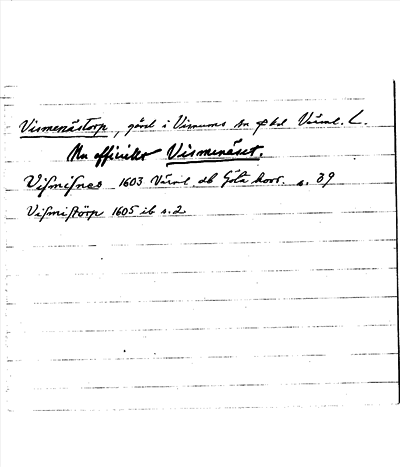 Vismenästorp, gård i Visnums sn o hd Värml. L.
Nu officiellt Vismenäset.
Vismisnes 1603 Värml. db Göta hovr. s. 39
Vismistörp 1605 ib s. 2